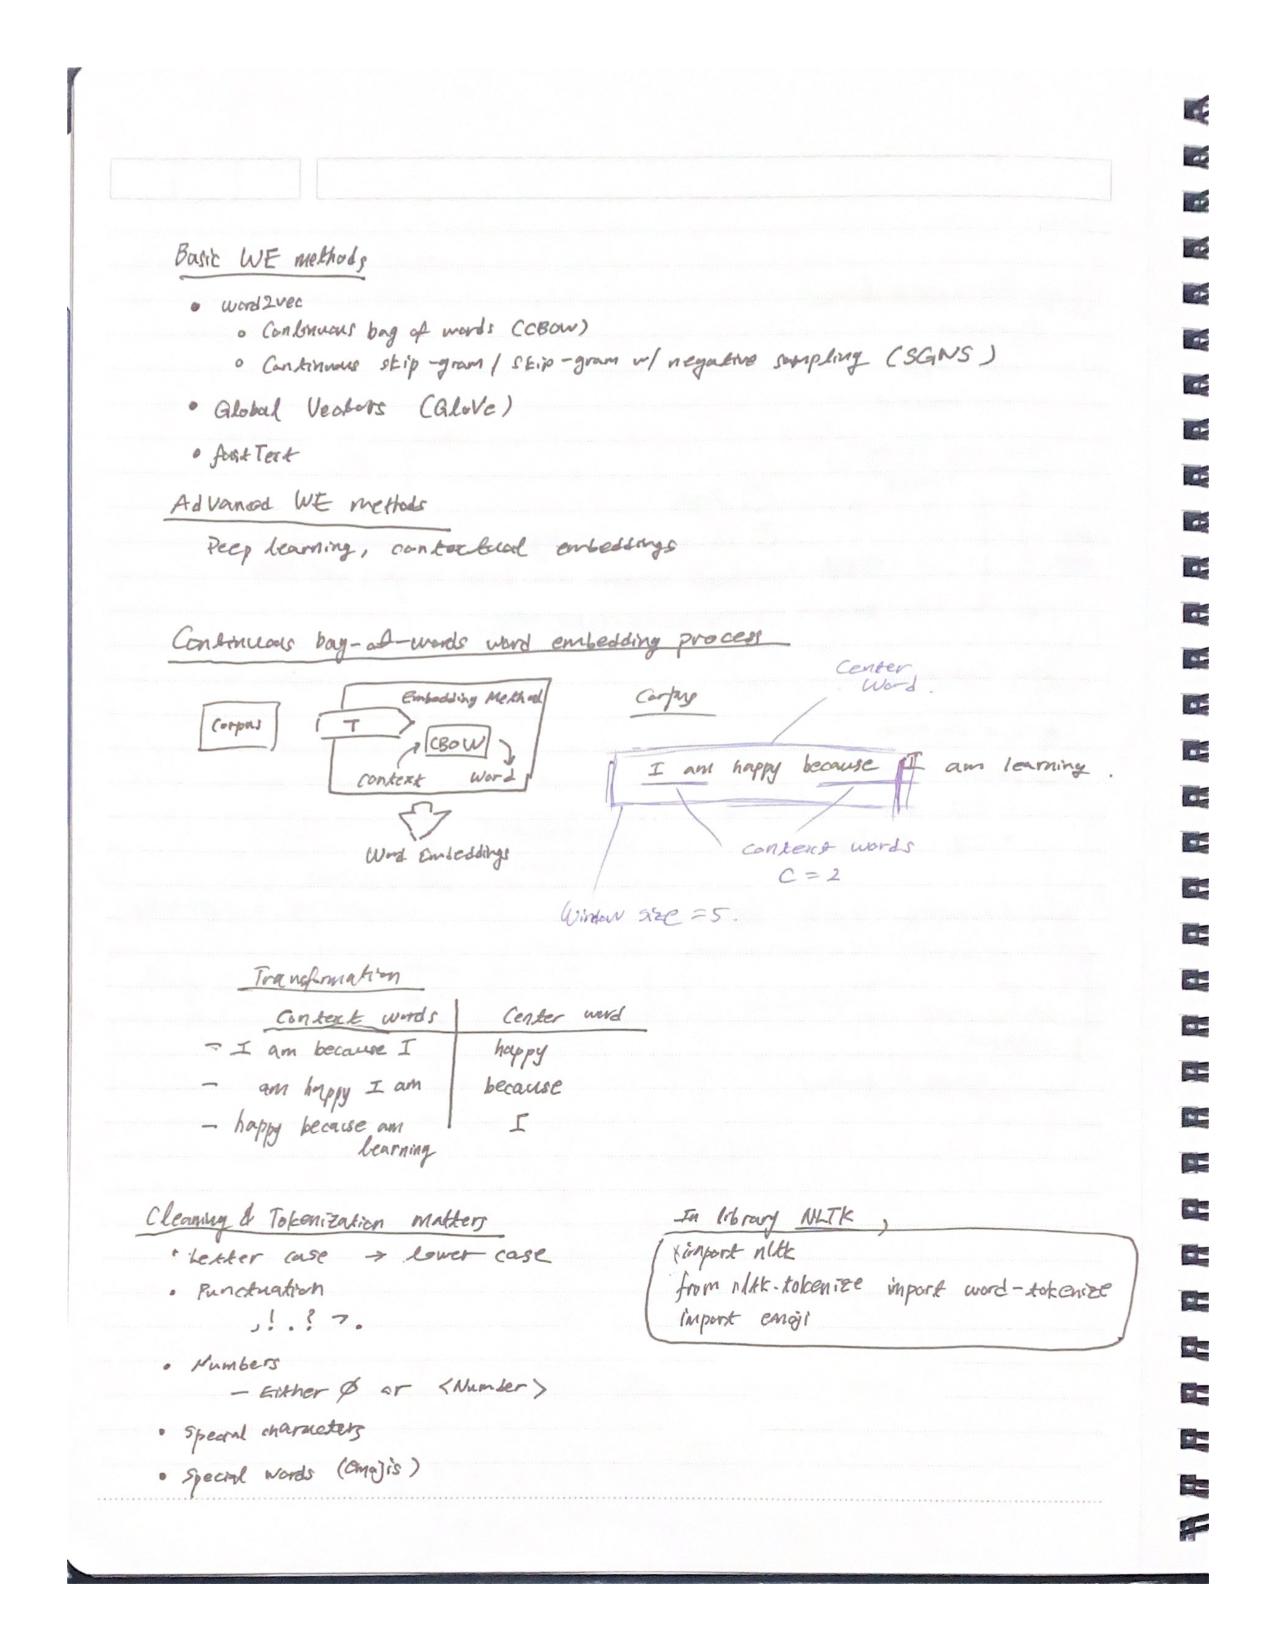 Basic WE methods
• word2vec
∘ Continuous bag of words (CBOW)
∘ Continuous skip-gram / skip-gram w/ negative sampling (SGNS)
• Global Vectors (GloVe)
• fastText
Advanced WE methods
Deep learning, contextual embeddings
Continuous bag-of-words word embedding process
Corpus
Embedding Method
T
CBOW
context word
Word Embeddings
Corpus
Center
word.
I am happy because I am learning.
context words
C = 2
Window size = 5.
Transformation
Context words | Center word
- I am because I | happy
- am happy I am | because
- happy because am | I
learning
Cleaning & Tokenization matters
• Letter case → lower case
• Punctuation
, ! . ? → .
• Numbers
- Either ∅ or <Number>
• Special characters
• Special words (emojis)
In library NLTK,
import nltk
from nltk.tokenize import word-tokenize
import emoji